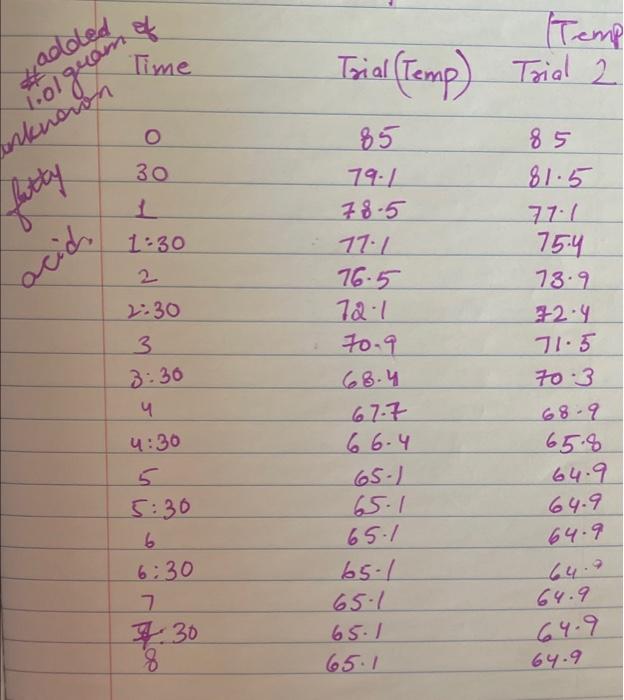 # added of
1.01 gram
unknown
fatty
acid.
(Temp
Time Trial (Temp) Trial 2
0 85 85
30 79.1 81.5
1 78.5 77.1
1:30 77.1 75.4
2 76.5 73.9
2:30 72.1 72.4
3 70.9 71.5
3:30 68.4 70.3
4 67.7 68.9
4:30 66.4 65.8
5 65.1 64.9
5:30 65.1 64.9
6 65.1 64.9
6:30 65.1 64.9
7 65.1 64.9
7:30 65.1 64.9
8 65.1 64.9